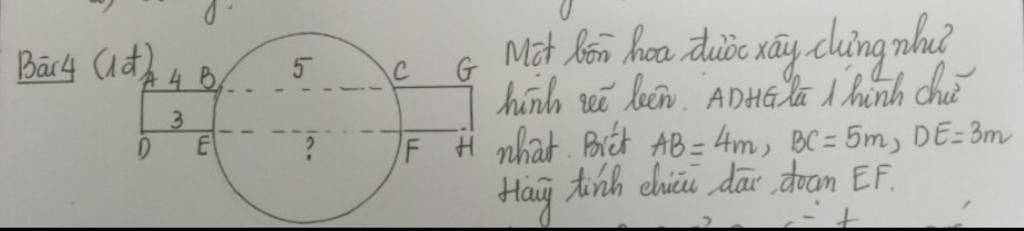 Bài 4 (1đ)
A 4 B 5 C G
3
D E ? F H
Một bồn hoa được xây dựng như
hình vẽ bên. ADHG là 1 hình chữ
nhật. Biết AB = 4m, BC = 5m, DE = 3m
Hãy tính chiều dài đoạn EF.